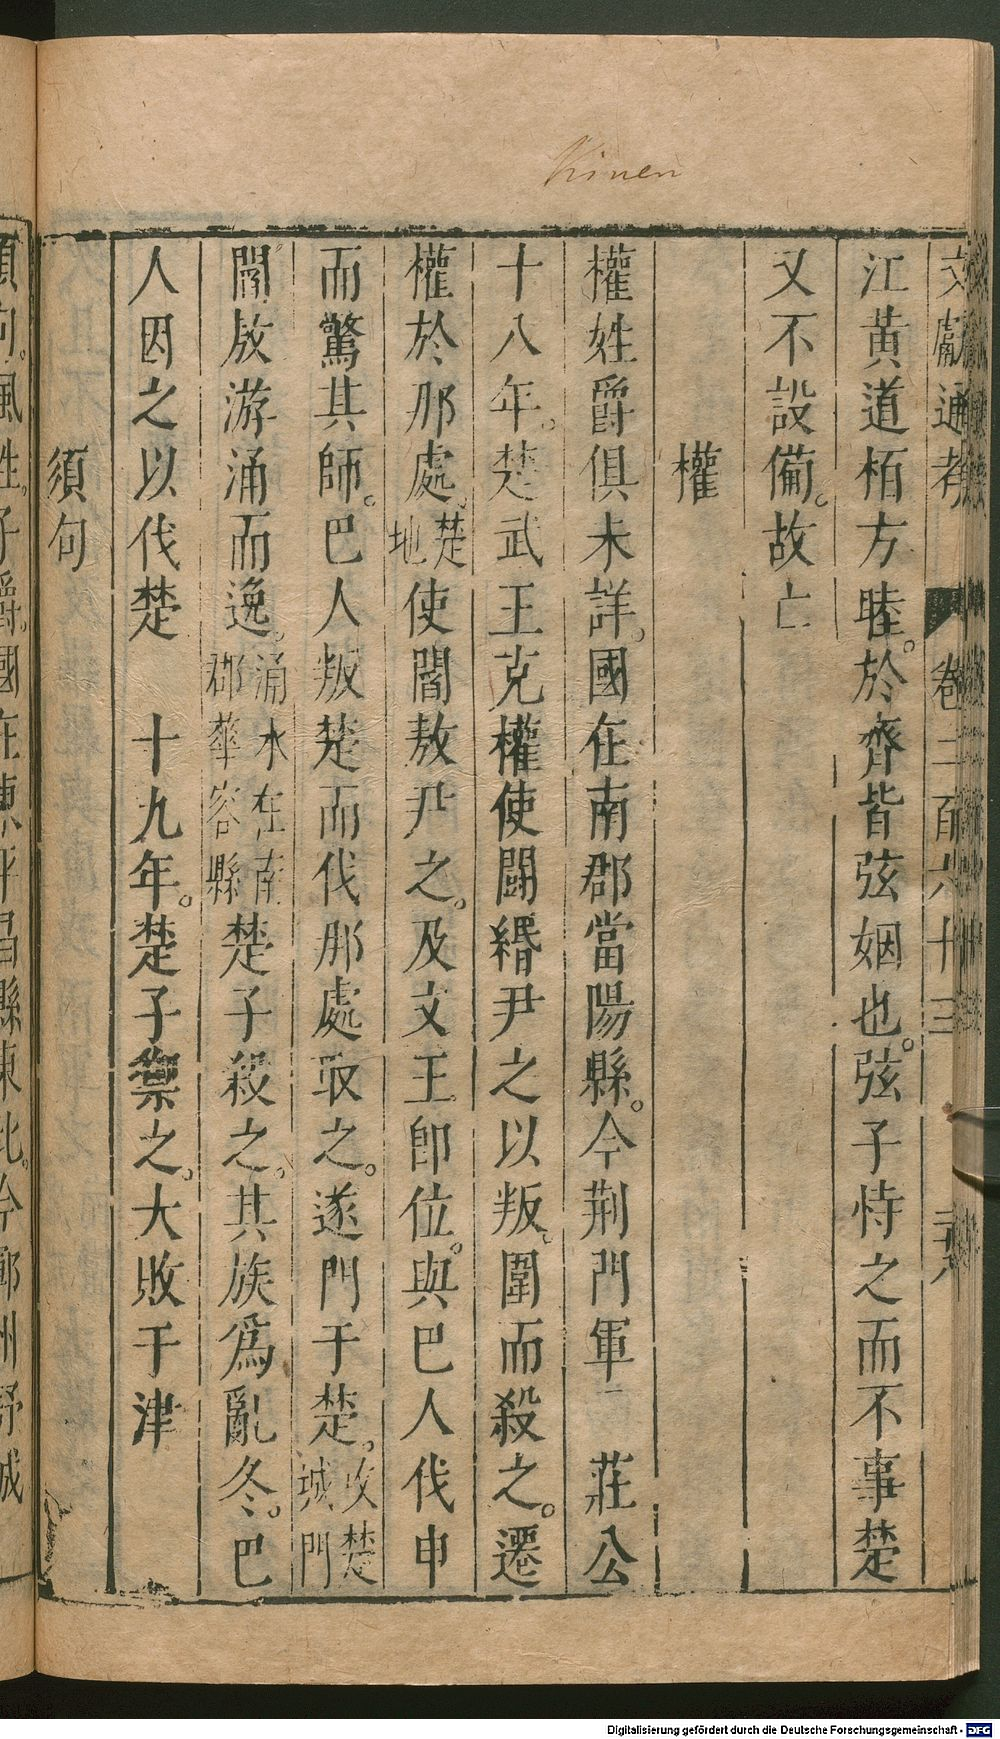 Kinen
文獻通考 卷二百六十三 二十八
江黃道栢方睦。於齊皆弦姻也。弦子恃之而不事楚
又不設備。故亡
權
權姓爵俱未詳。國在南郡當陽縣。今荆門軍 莊公
十八年。楚武王克權使鬭緡尹之以叛。圍而殺之。遷
權於那處。楚地使閻敖尹之。及文王卽位。與巴人伐申
而驚其師。巴人叛楚而伐那處取之。遂門于楚。攻楚城門
閻敖游涌而逸。涌水在南郡華容縣楚子殺之。其族爲亂冬。巴
人因之以伐楚 十九年。楚子禦之。大敗于津
須句
須句。風姓。子爵。國在東平昌縣東北。今鄆州舒城
Digitalisierung gefördert durch die Deutsche Forschungsgemeinschaft - DFG